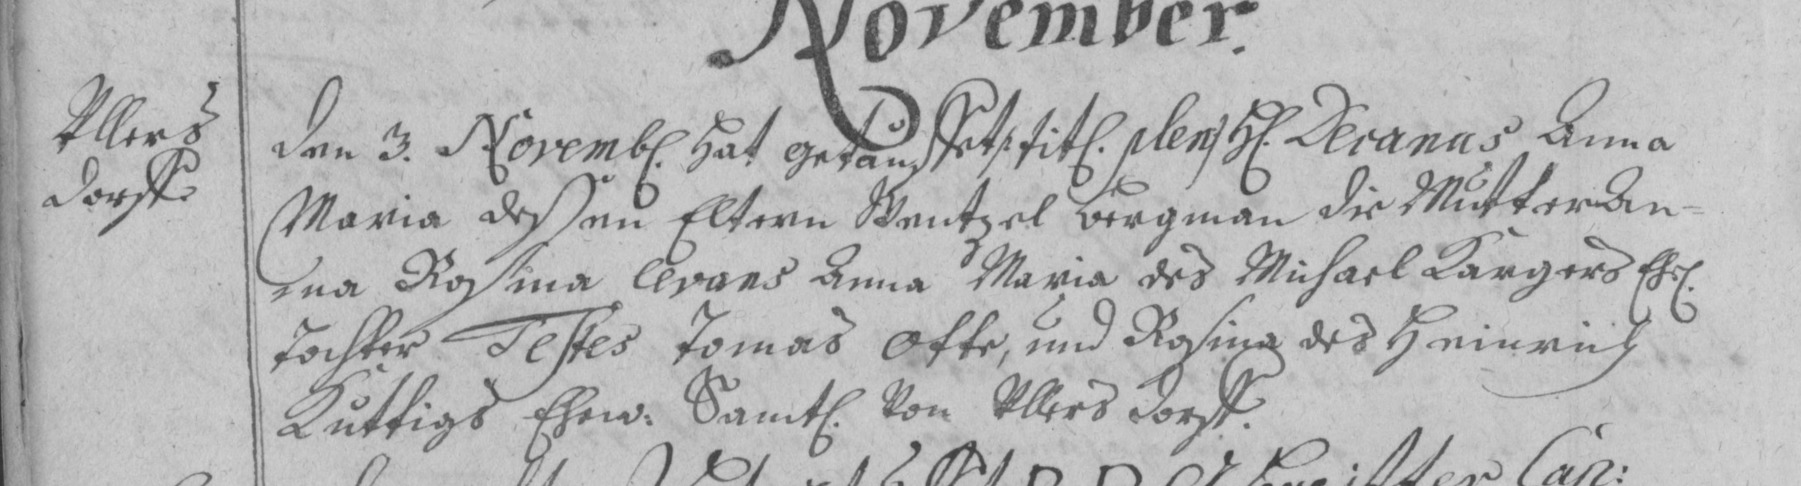 November.
Ullers
dorff
den 3. Novemb. hat getauffet tit. plen. H. Decanus Anna
Maria dessen Eltern Wentzel Bergman die Mutter An-
na Rosina Levans Anna Maria des Michael Kargers Ehel.
Tochter Testes Tomas Otte, und Rosina des Heinrich
Kuttigs Ehew: Samtl. von Ullers dorff.
Cap: